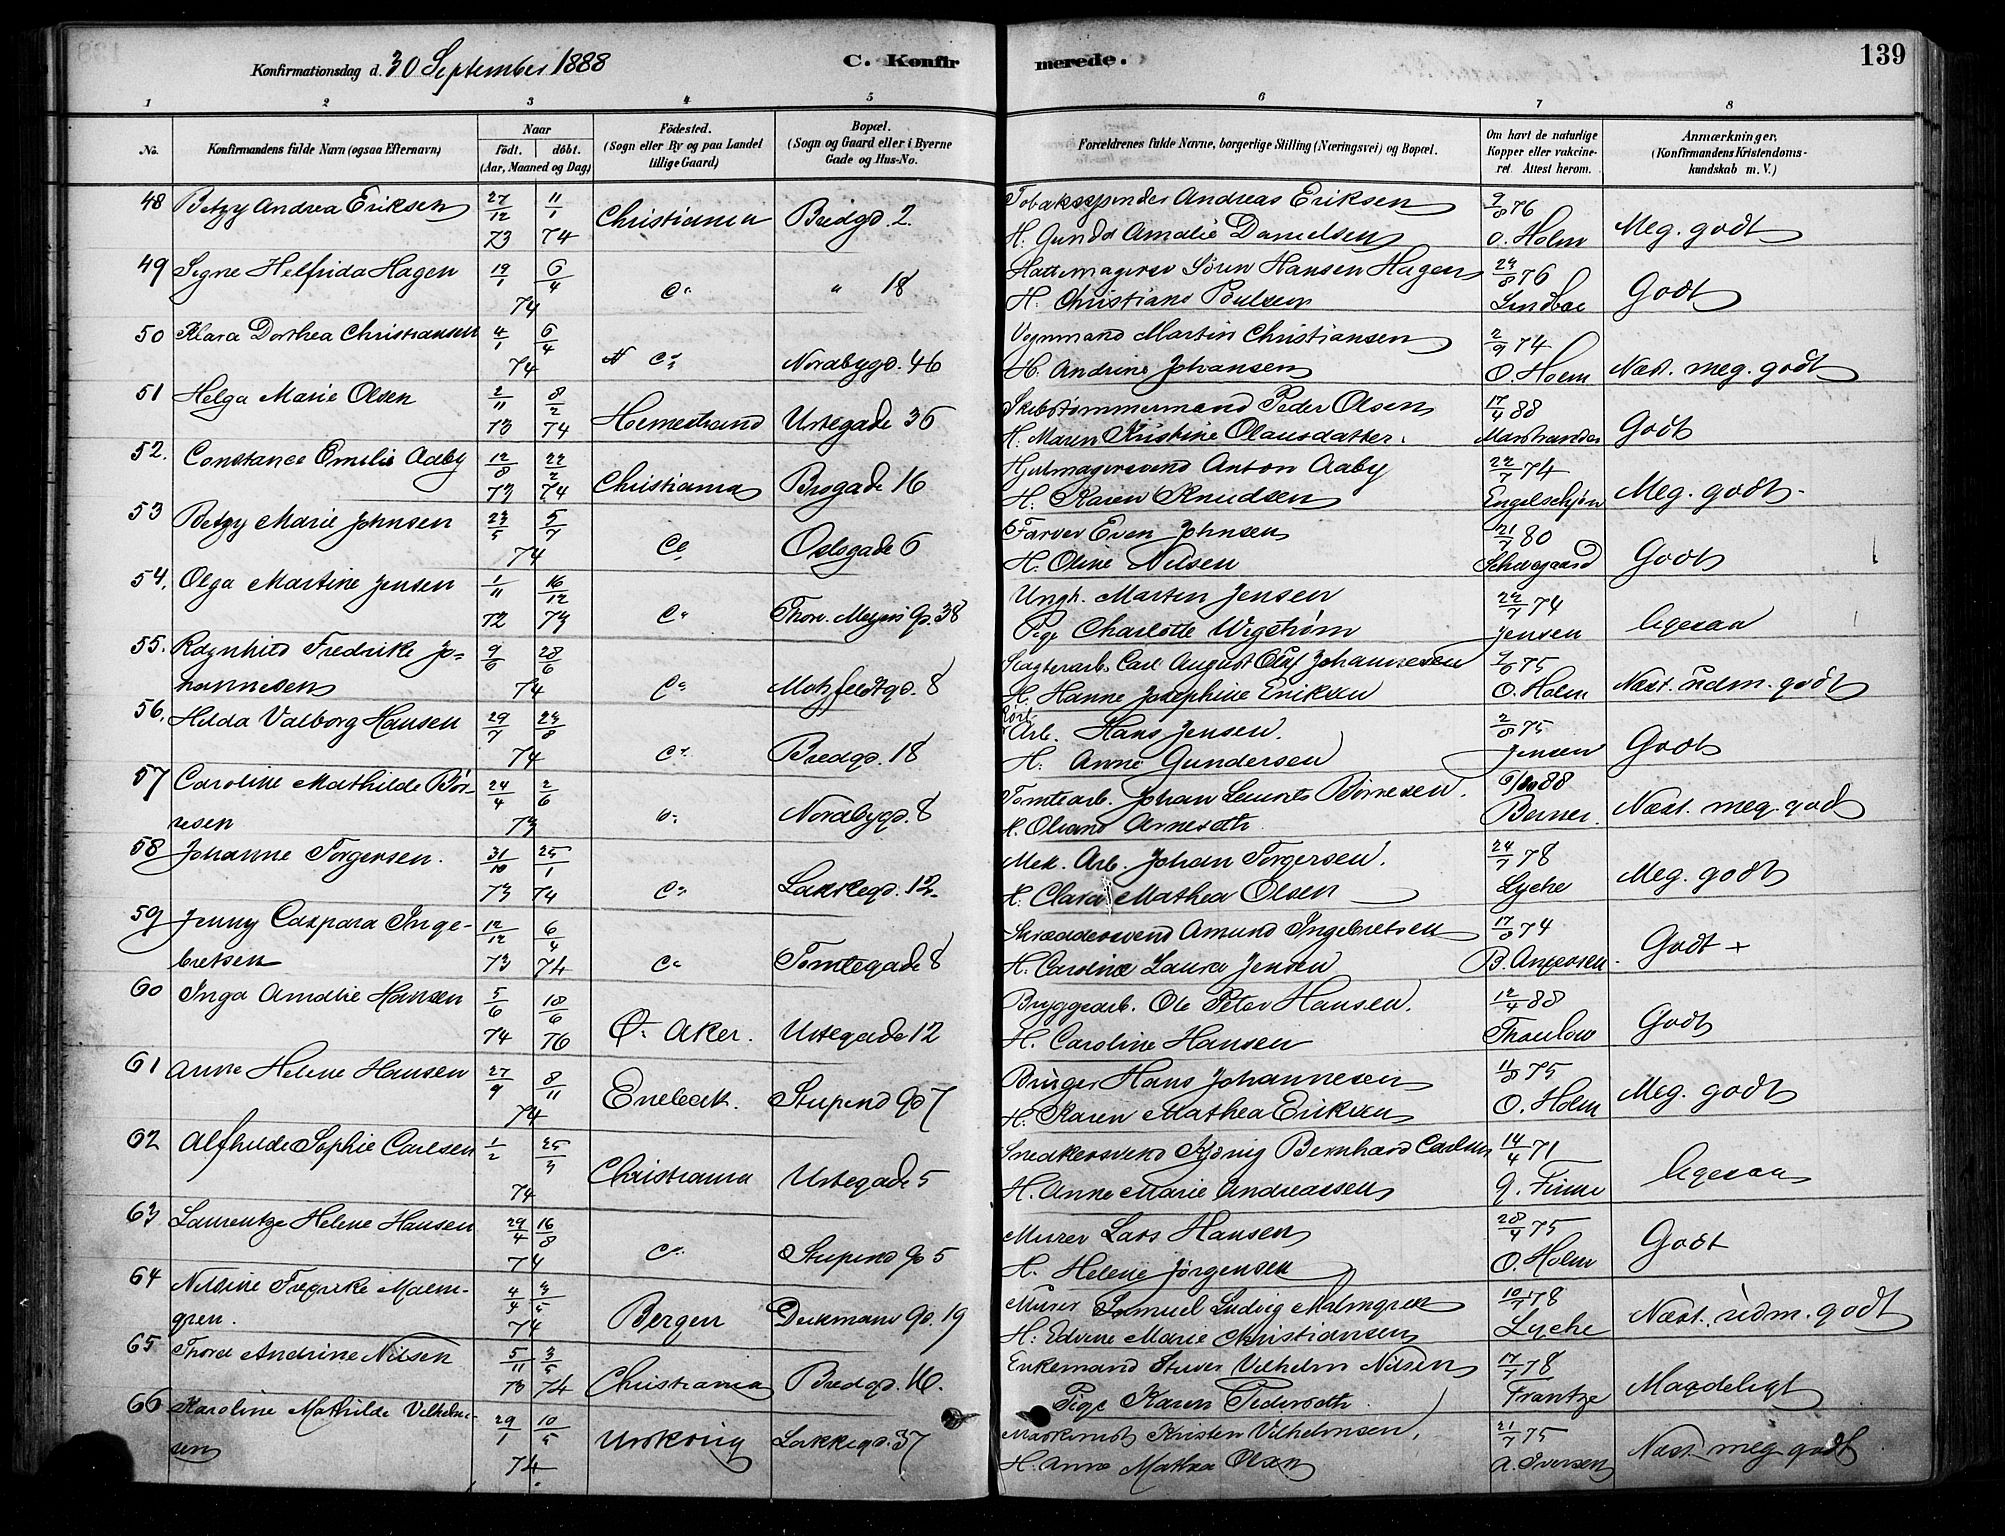 Konfirmationsdag d. 30 September 1888 C. Konfirmerede. 139
1 2 3 4 5 6 7 8
No. Konfirmandens fulde Navn (ogsaa Efternavn) Naar Födt. döbt. (Aar, Maaned og Dag) Födested. (Sogn eller By og paa Landet tillige Gaard) Bopæl. (Sogn og Gaard eller i Byerne Gade og Hus-No. Forældrenes fulde Navne, borgerlige Stilling (Næringsvei) og Bopæl. Om havt de naturlige Kopper eller vakcineret. Attest herom. Anmærkninger, (Konfirmandens Kristendomskundskab m. V.)
48 Betzy Andrea Eriksen 27/12 73 11/1 74 Christiania Bredgd. 2. Tobaksspinder Andreas Eriksen 9/8 76
H. Gunda Amalie Danielsen O. Holm Meg. godt
49 Signe Helfrida Hagen 19/1 6/4 74 Co. " 18 Hattemagersv Sören Hansen Hagen 29/8 76
H. Christiane Poulsen Lindboe Godt
50 Klara Dorthea Christiansen 4/1 6/4 74 Co. Nordbygd. 46 Vognmand Martin Christiansen 2/9 74
H. Andrine Johansen O. Holm Næst. meg. godt
51 Helga Marie Olsen 2/11 73 8/2 74 Holmestrand Urtegade 36 Skibstømmermand Peder Olsen 17/4 88
H. Maren Kristine Olausdatter. Marstrander Godt
52. Constance Emilie Aaby 12/8 73 22/2 74 Christiania Brogade 16 Hjulmagersvend Anton Aaby 22/7 74
H. Karen Knudsen Engelschjøn Meg. godt.
53 Betzy Marie Johnsen 23/5 5/7 74 Co Oslogade 6 Farver Even Johnsen 21/7 80
H. Oline Nilsen Schwegaard Godt
54. Olga Martine Jensen 1/11 72 16/12 73 Co. Thorv. Meyers Gd. 38 Ungk. Martin Jensen 22/7 74
Pige Charlotte Wegstrøm Jensen ligesaa
55. Ragnhild Fredrikke Jo= 9/6 28/6 Slagterarb. Carl August Olaf Johannesen 75
hannesen 74 Co. Motzfeldtgd. 8 H. Hanne Josephine Eriksen O. Holm Næst. udm. godt
56. Hilda Valborg Hansen 29/7 23/8 74 Co. Bredgd. 18 Arb. Hans Jensen. 2/8 75
H. Anne Gundersen Jensen Godt
57 Caroline Mathilde Bör- 24/4 2/6 Tomtearb. Johan Laurits Børresen. 88
resen 73 Nordbygd. 8 H. Oliane Arnesdtr. Berner. Næst. meg. godt
58 Johanne Torgersen. 31/10 73 25/1 74 Co. Lakkegd. 12. Mek. Arb. Johan Torgersen. 24/7 78
H. Clara Mathea Olsen Lyche Meg. godt
59 Jenny Caspara Inge- 12/12 73 6/4 74 Skrædersvend Amund Ingebretsen 17/8 74
bretsen Co Tomtegade 8 H. Caroline Laura Jensen Godt +
60 Inga Amalie Hansen 5/6 74 18/6 76 Ø. Aker. Urtegade 12 Bryggearb. Ole Peter Hansen. 12/4 88
H. Caroline Hansen Thaulow Godt
61 Anne Helene Hansen 27/9 8/11 74 Enebak. Stupend Gd 7 Bruger Hans Johannesen 75
H. Karen Mathea Eriksen O. Holm Meg. godt
62 Alfhilde Sophie Carlsen 1/2 25/3 74 Christiania Urtegade 5 Snedkersvend Bernhard Carlsen 14/4 71
H. Anne Marie Andreassen ligesaa
63 Laurentze Helene Hansen 29/4 16/8 74 Co. Stupend Gd 5 Murer Lars Hansen 28/4 75
H. Helene Jörgensen O. Holm Godt
64 Nilsine Fredrike Malm- 4/4 3/5 Murer Samuel Ludvig Malmgren 10/7 78
gren. 74 Bergen Deichmans Gd. 19 H. Edvine Marie Christiansen Lyche Næst. udm. godt
65 Thora Andrine Nilsen 5/11 73 3/5 74 Christiania Bredgd. 16. Enkemand Stuer Vilhelm Nilsen 17/7 78
Pige Karen Pedersdtr. Frantze Maadeligt
66 Karoline Mathilde Vilhelm- 29/1 10/5 Kristen Vilhelmsen, 21/7 75
sen 74 Urskoug Lakkegd. 37 H. Anne Mathea Olsen A. Iversen Næst. meg godt